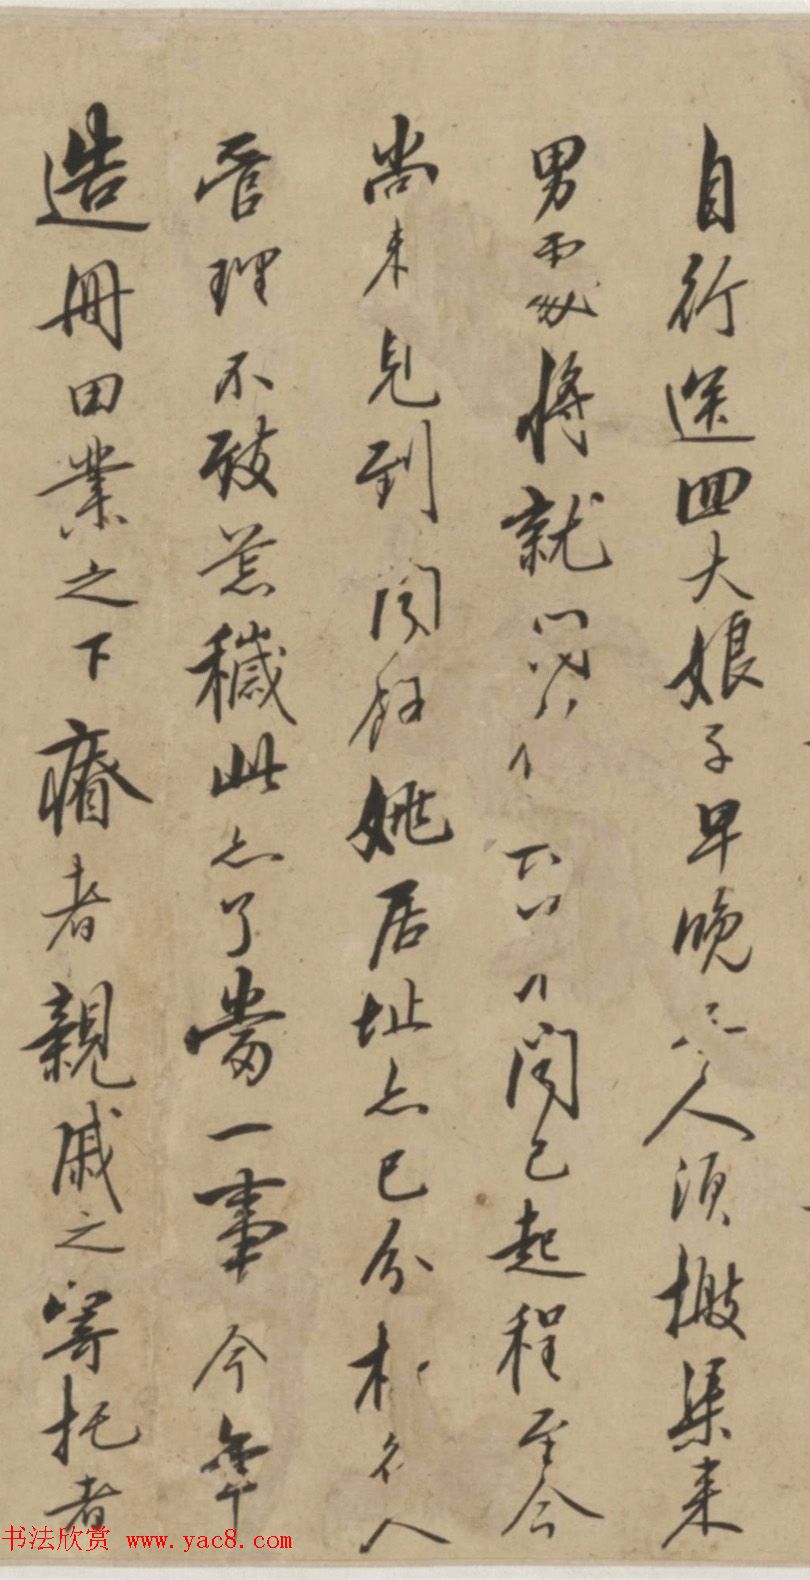 自行送四大娘子早晚 人須搬渠來
男 將就 聞已起程至今
尚未見到聞 姚居址亦已分 各人
管理不致荒穢此亦了當一事今年
造冊田業之下瘠者親戚之寄托者
书法欣赏 www.yac8.com